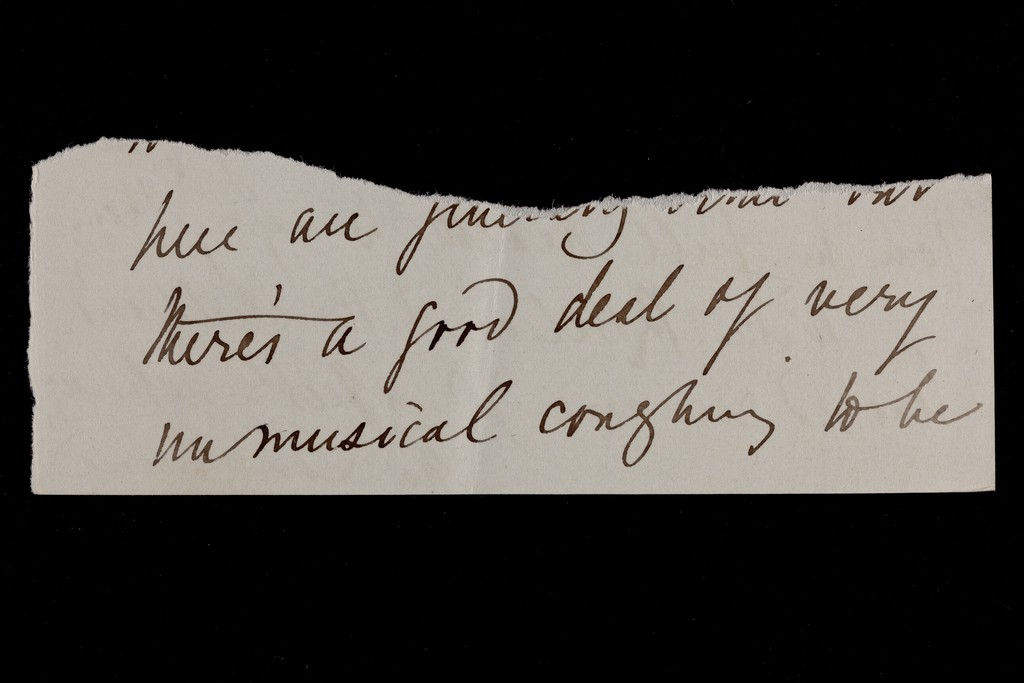 here are
there's a good deal of very
unmusical coughing to be